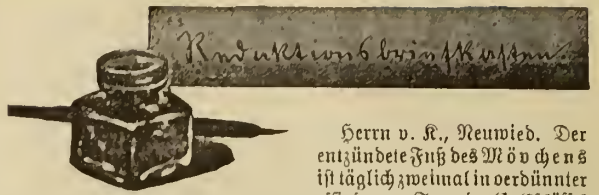 Redaktionsbriefkasten.
Herrn v. K., Neuwied. Der
entzündete Fuß des Mövchens
ist täglich zweimal in verdünnter